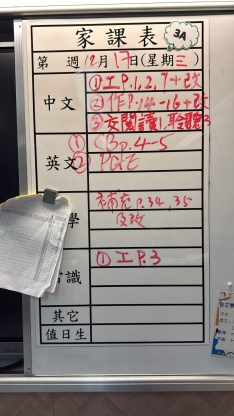 家課表
3A
第 週 12月17日(星期三)
中文
①工P.1,2,7+改
②作P.14-16+改
③交閱讀1,聆聽3
英文
①CBp.4-5
②PGE
學
補充p.34,35
及改
常識
①工P.3
其它
值日生